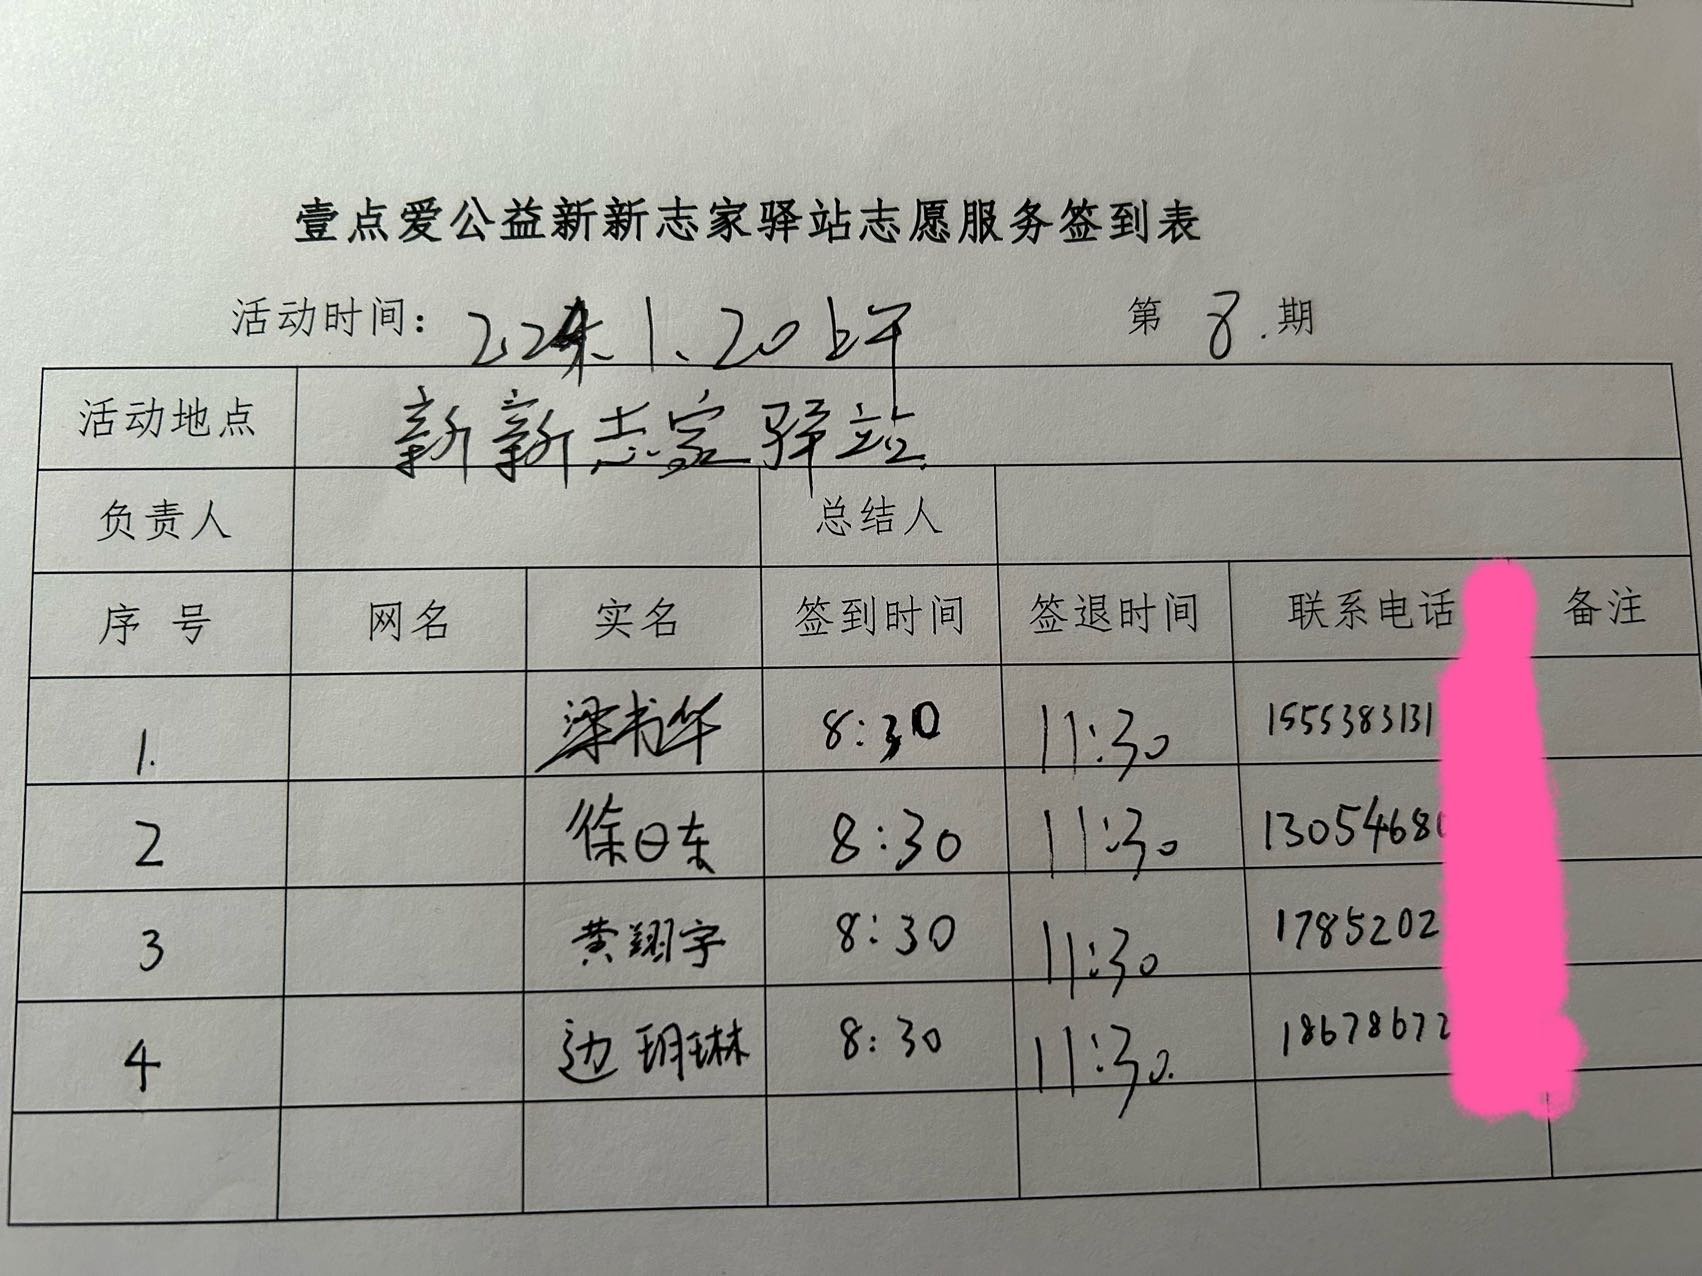 壹点爱公益新新志家驿站志愿服务签到表
活动时间: 1.20上午 第 8.期
活动地点 新新志家驿站
负责人 总结人
序 号 网名 实名 签到时间 签退时间 联系电话 备注
1. 梁书华 8:30 11:30 1555383131
2 徐日东 8:30 11:30 13054680
3 黄翔宇 8:30 11:30 1785202
4 边玥琳 8:30 11:30. 18678672